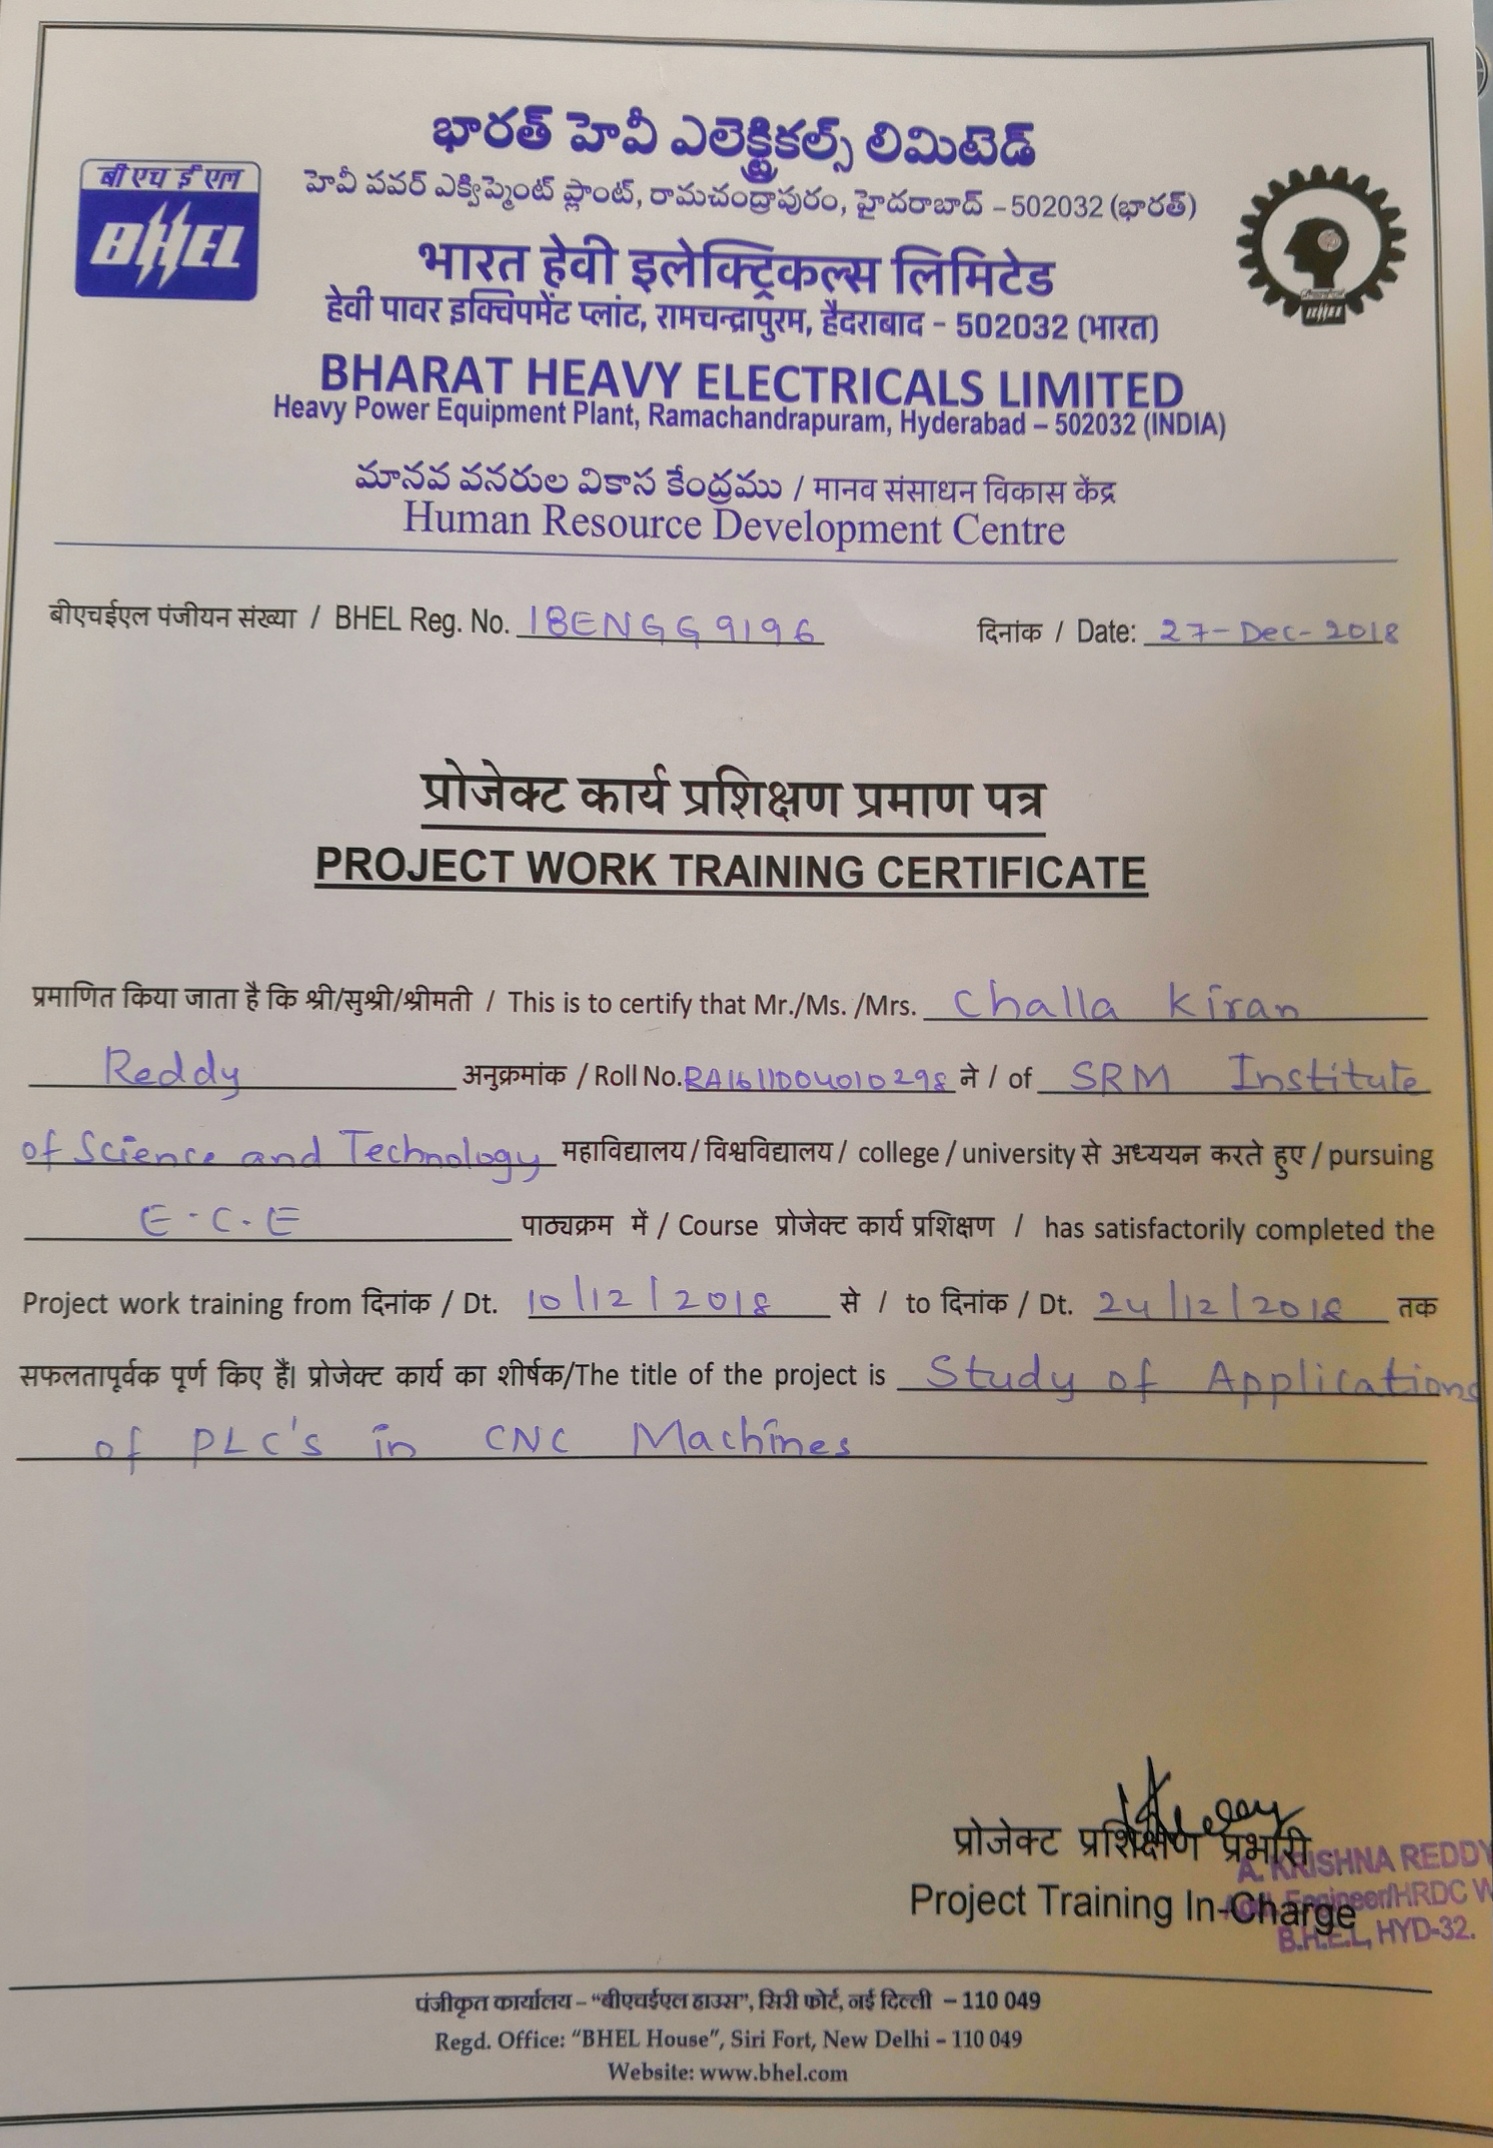 భారత్ హెవీ ఎలెక్ట్రికల్స్ లిమిటెడ్
హెవీ పవర్ ఎక్విప్మెంట్ ప్లాంట్, రామచంద్రాపురం, హైదరాబాద్ – 502032 (భారత్)
बीएचईएल
BHEL
भारत हेवी इलेक्ट्रिकल्स लिमिटेड
हेवी पावर इक्विपमेंट प्लांट, रामचन्द्रापुरम, हैदराबाद - 502032 (भारत)
BHARAT HEAVY ELECTRICALS LIMITED
Heavy Power Equipment Plant, Ramachandrapuram, Hyderabad – 502032 (INDIA)
మానవ వనరుల వికాస కేంద్రము / मानव संसाधन विकास केंद्र
Human Resource Development Centre
बीएचईएल पंजीयन संख्या / BHEL Reg. No. 18ENGG9196 दिनांक / Date: 27-Dec-2018
प्रोजेक्ट कार्य प्रशिक्षण प्रमाण पत्र
PROJECT WORK TRAINING CERTIFICATE
प्रमाणित किया जाता है कि श्री/सुश्री/श्रीमती / This is to certify that Mr./Ms. /Mrs. Challa Kiran
Reddy अनुक्रमांक / Roll No. RA1611004010298 ने / of SRM Institute
of Science and Technology महाविद्यालय / विश्वविद्यालय / college / university से अध्ययन करते हुए / pursuing
E.C.E पाठ्यक्रम में / Course प्रोजेक्ट कार्य प्रशिक्षण / has satisfactorily completed the
Project work training from दिनांक / Dt. 10/12/2018 से / to दिनांक / Dt. 24/12/2018 तक
सफलतापूर्वक पूर्ण किए हैं। प्रोजेक्ट कार्य का शीर्षक/The title of the project is Study of Applications
of PLC's in CNC Machines
प्रोजेक्ट प्रशिक्षण प्रभारी
A. KRISHNA REDDY
Project Training In-Charge
Engineer/HRDC
B.H.E.L, HYD-32.
पंजीकृत कार्यालय – “बीएचईएल हाउस”, सिरी फोर्ट, नई दिल्ली – 110 049
Regd. Office: “BHEL House”, Siri Fort, New Delhi – 110 049
Website: www.bhel.com